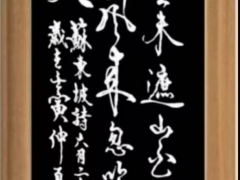 未遮山白
風来忽吹
蘇東坡詩六月二
歲在壬寅仲夏